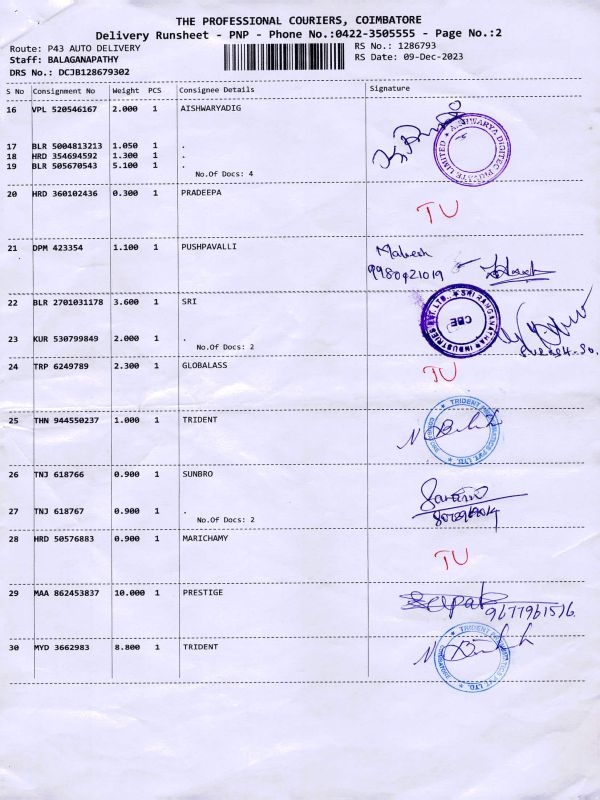 THE PROFESSIONAL COURIERS, COIMBATORE
Delivery Runsheet - PNP - Phone No.:0422-3505555 - Page No.:2
Route: P43 AUTO DELIVERY
RS No.: 1286793
Staff: BALAGANAPATHY
RS Date: 09-Dec-2023
DRS No.: DCJB128679302
S No Consignment No Weight PCS Consignee Details Signature
16 VPL 520546167 2.000 1 AISHWARYADIG
AISHWARYA DIGITEC PRIVATE LIMITED
17 BLR 5004813213 1.050 1 .
18 HRD 354694592 1.300 1 .
19 BLR 505670543 5.100 1 .
No.Of Docs: 4
20 HRD 360102436 0.300 1 PRADEEPA
TU
21 DPM 423354 1.100 1 PUSHPAVALLI
Mahesh
9980921019
22 BLR 2701031178 3.600 1 SRI
SRI RANGANATHAR INDUSTRIES PVT. LTD.,
CBE
23 KUR 530799849 2.000 1 .
No.Of Docs: 2
24 TRP 6249789 2.300 1 GLOBALASS
TU
25 THN 944550237 1.000 1 TRIDENT
26 TNJ 618766 0.900 1 SUNBRO
27 TNJ 618767 0.900 1 .
No.Of Docs: 2
28 HRD 50576883 0.900 1 MARICHAMY
TU
29 MAA 862453837 10.000 1 PRESTIGE
Deepak
9677961576
30 MYD 3662983 8.800 1 TRIDENT